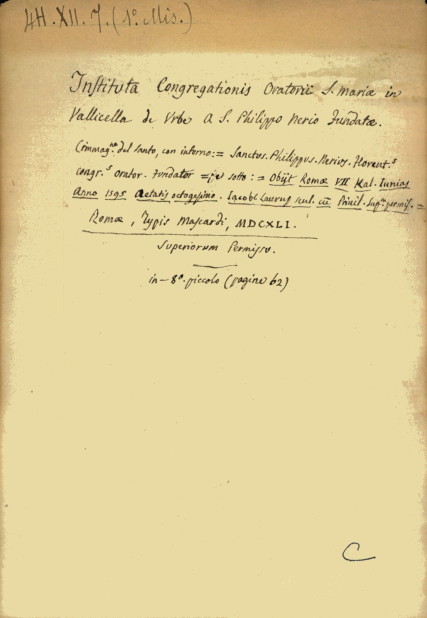 4H.XII.7.(1º.Mis.)
Instituta Congregationis Oratorii S. Mariæ in
Vallicella de Urbe A S. Philippo Nerio Fundatæ.
Commag.ne del santo, con intorno:= Sanctus. Philippus. Nerius. Florent.s
congr.s orator. Fundator =; e sotto := Obijt Romæ VII Kal. Iunias
Anno 1595 Aetatis octogesimo. Iacobi Laurus scul. cũ Privil. Sup. permis. =
Romæ, Typis Mascardi, MDCXLI.
Superiorum Permissu.
in-8º. piccolo (pagine 62)
C